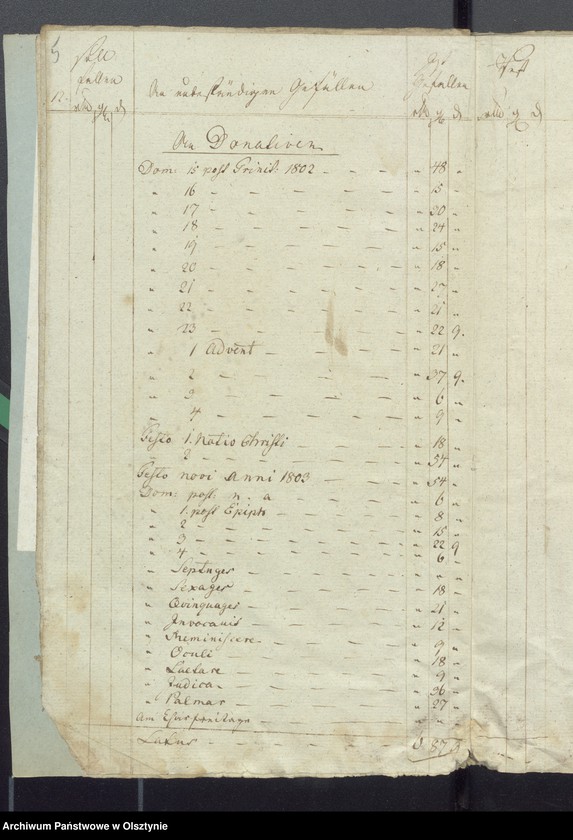 5
Soll
fallen
An unbeständigen Gefällen
Ist
Gefallen
Rest
An Donativen
Dom: 15 post Trinit: 1802 – – – " 48 "
" 16 – – – " 15 "
" 17 – – – " 30 "
" 18 – – – " 24 "
" 19 – – – " 15 "
" 20 – – – " 18 "
" 21 – – – " 27 "
" 22 – – – " 21 "
" 23 – – – " 22 9.
" 1 Advent – – – " 21 "
" 2 – – – " 37 9.
" 3 – – – " 6 "
" 4 – – – " 9 "
Festo 1. Natio Christi – – " 18 "
" 2 – – – " 54 "
Festo novi Anni 1803 – – " 54 "
Dom: post n. a – – – " 6 "
" 1. post Epiph – – – " 8 "
" 2 – – – " 15 "
" 3 – – – " 22 9
" 4 – – – " 6 "
" Septuages – – – " " "
" Sexages – – – " 18 "
" Quinquages – – – " 21 "
" Invocavit – – – " 12 "
" Reminiscere – – – " 9 "
" Oculi – – – " 18 "
" Laetare – – – " 9 "
" Judica – – – " 36 "
" Palmar – – – " 27 "
Am Charfreitage – – – " " "
Latus – – – 87
Archiwum Państwowe w Olsztynie